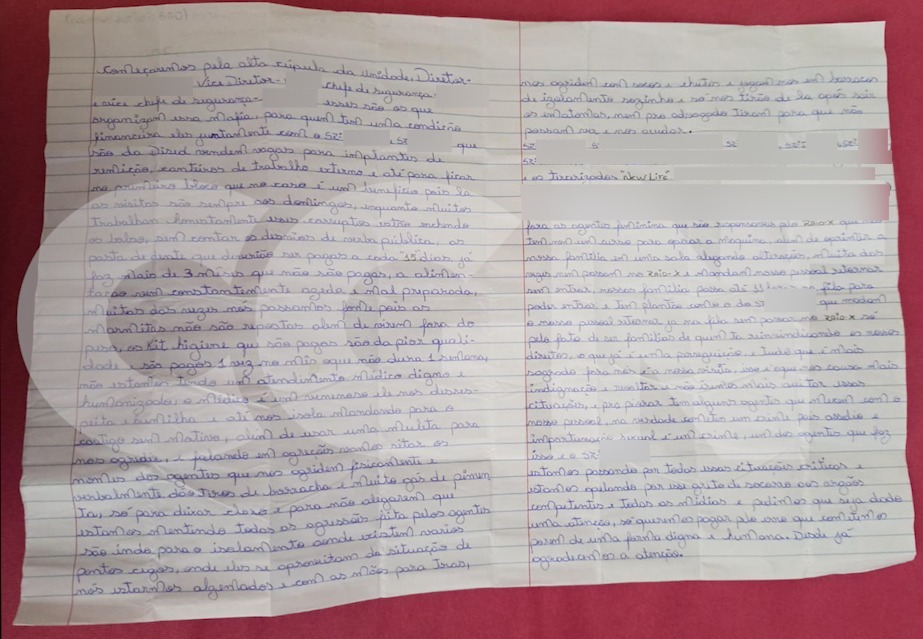 Começaremos pela alta cúpula da unidade, Diretor-
Vice Diretor- chefe de segurança-
e vice chefe de segurança- esses são os que
organizam essa mafia, para quem tem uma condição
financeira eles juntamente com o SZ: , SZ que
são da Disud vendem vagas para implantes de
remição, canteiros de trabalho externo e até para ficar
no primeiro bloco que no caso é um beneficio pois la
as visitas são sempre aos domingos, enquanto muitos
trabalham honestamente esses corruptos estão enchendo
os bolso, sem contar os desvios de verba pública, as
pasta de dente que deverião ser pagas a cada 15 dias, já
faz mais de 3 mêses que não são pagas, a alimen-
tação vem constantemente azeda e mal preparada,
muitas das vezes nós passamos fome pois as
marmitas não são repostas alem de virem fora do
peso, os Kit higiene que são pagos são da pior quali-
dade e são pagos 1 vez no mês oque não dura 1 semana,
não estamos tendo um atendimento médico digno e
humanizado, o médico é um
peita e humilha e até nos isola mandando para o
castigo sem motivo, além de usar uma muleta para
nos agredir, e falando em agreção vamos citar os
nomes dos agentes que nos agridem fisicamente e
verbalmente, dão tiros de borracha e muito gás de pimen
ta, só para deixar claro e para não alegarem que
estamos mentindo todas as agressões feita pelos agentes
são indo para o isolamento aonde existem varios
pontos cegos, onde eles se aproveitam da situação de
nós estarmos algemados e com as mãos para tras,
nos agridem com socos e chutes e jogam nos em barracos
de izolamento sozinho e só nos tirão de la após sair
os imatomas, nem pro advogado tiram para que não
possam ver e nos ajudar.
SZ S SZ , SZ: , SZ:
SZ:
e os terceirizados "New Life"
fora as agentes feminina que são responsaveis pelo Raio-X que não
tem nem um curso para operar a maquina, alem de oprimir a
nossa família em uma sala alegando alteração, muita das
vezes nem passam no Raio-X e mandam nosso pessoal retornar
sem entrar, nossas família passa até na fila para
poder entrar e tem plantão como o do SZ que mandam
o nosso pessoal retornar ja na fila sem passar no raio-x só
pelo fato de ser famílias de quem ta reinvindicando os nossos
direitos, o que já é uma perseguição, e tudo que é mais
sagrado para nós é a nossa visita, isso é o que nos causa mais
indignação e revolta e não iremos mais aceitar essas
cituações, e pra piorar tem alguns agentes que mexem com o
nosso pessoal, na verdade cometem um crime pois assedio e
importunação sexual é um crime, um dos agentes que faz
isso é o SZ:
estamos passando por todas essas cituações criticas e
estamos apelando por esse grito de socorro aos orgãos
competentes e todas as midias e pedimos que seja dado
uma atenção, só queremos pagar pelo erro que cometemos
porem de uma forma digna e humana. Desde já
agradecemos a atenção.